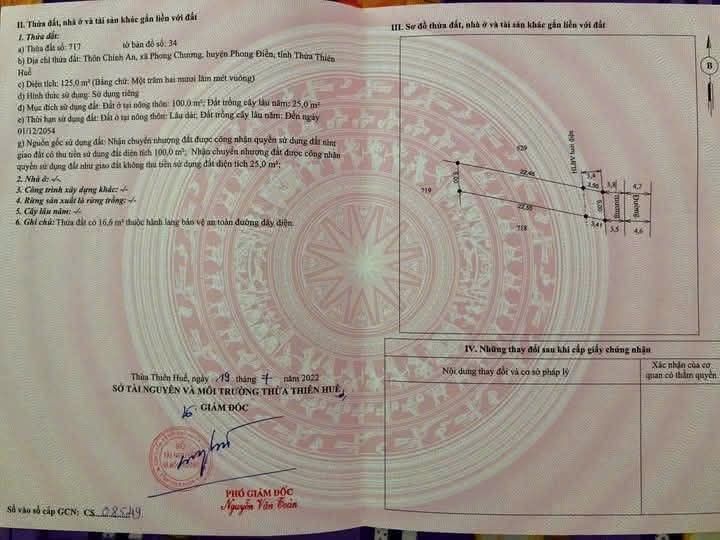 II. Thửa đất, nhà ở và tài sản khác gắn liền với đất
1. Thửa đất:
a) Thửa đất số: 717 tờ bản đồ số: 34
b) Địa chỉ thửa đất: Thôn Chính An, xã Phong Chương, huyện Phong Điền, tỉnh Thừa Thiên
Huế
c) Diện tích: 125,0 m² (Bằng chữ: Một trăm hai mươi lăm mét vuông)
d) Hình thức sử dụng: Sử dụng riêng
đ) Mục đích sử dụng đất: Đất ở tại nông thôn: 100,0 m²; Đất trồng cây lâu năm: 25,0 m²
e) Thời hạn sử dụng đất: Đất ở tại nông thôn: Lâu dài; Đất trồng cây lâu năm: Đến ngày
01/12/2054
g) Nguồn gốc sử dụng đất: Nhận chuyển nhượng đất được công nhận quyền sử dụng đất như
giao đất có thu tiền sử dụng đất diện tích 100,0 m²; Nhận chuyển nhượng đất được công nhận
quyền sử dụng đất như giao đất không thu tiền sử dụng đất diện tích 25,0 m².
2. Nhà ở: -/-
3. Công trình xây dựng khác: -/-
4. Rừng sản xuất là rừng trồng: -/-
5. Cây lâu năm: -/-
6. Ghi chú: Thửa đất có 16,6 m² thuộc hành lang bảo vệ an toàn đường dây điện.
Thừa Thiên Huế, ngày 19 tháng 7 năm 2022
SỞ TÀI NGUYÊN VÀ MÔI TRƯỜNG THỪA THIÊN HUẾ
GIÁM ĐỐC
PHÓ GIÁM ĐỐC
Nguyễn Văn Toàn
Số vào sổ cấp GCN: CS 08549
III. Sơ đồ thửa đất, nhà ở và tài sản khác gắn liền với đất
B
529
HLATLĐ
3,4
22,46
3,50
3,8
4,7
719
5,00
5,00
Đường
Đường
22,55
3,41
718
3,5
4,6
IV. Những thay đổi sau khi cấp giấy chứng nhận
Nội dung thay đổi và cơ sở pháp lý
Xác nhận của cơ
quan có thẩm quyền